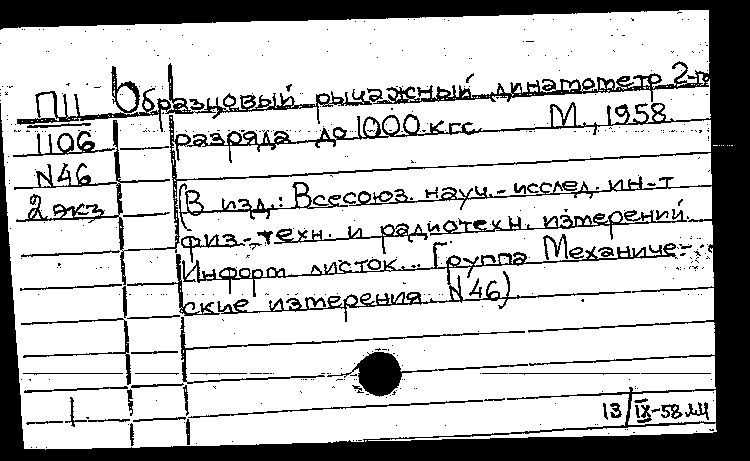 П11 Образцовый рычажный динамометр 2-го
1106 разряда до 1000 кгс М., 1958.
N46
2 экз (В изд.: Всесоюз. науч.-исслед. ин-т
физ.-техн. и радиотехн. измерений.
Информ. листок... Группа Механиче-
ские измерения. N46)
13/IX-58